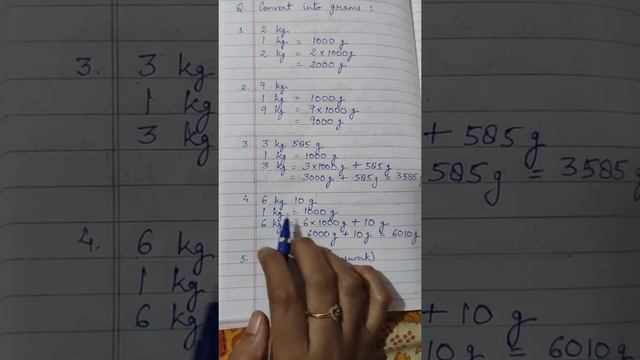 Q Convert into grams :
1. 2 kg
1 kg = 1000 g
2 kg = 2 × 1000 g
= 2000 g
2. 9 kg
1 kg = 1000 g
9 kg = 9 × 1000 g
= 9000 g
3. 3 kg 585 g
1 kg = 1000 g
3 kg = 3 × 1000 g + 585 g
= 3000 g + 585 g = 3585 g
4. 6 kg 10 g
1 kg = 1000 g
6 kg = 6 × 1000 g + 10 g
= 6000 g + 10 g = 6010 g
5.
3. 3 kg
1 kg
3 kg
+ 585 g
585 g = 3585 g
4. 6 kg
1 kg
6 kg
+ 10 g
10 g = 6010 g